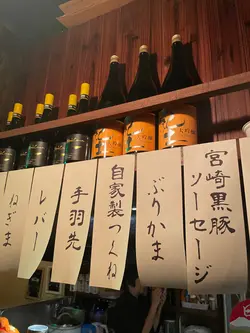 宮崎黒豚
ソーセージ
ぶりかま
自家製つくね
手羽先
レバー
ねぎま